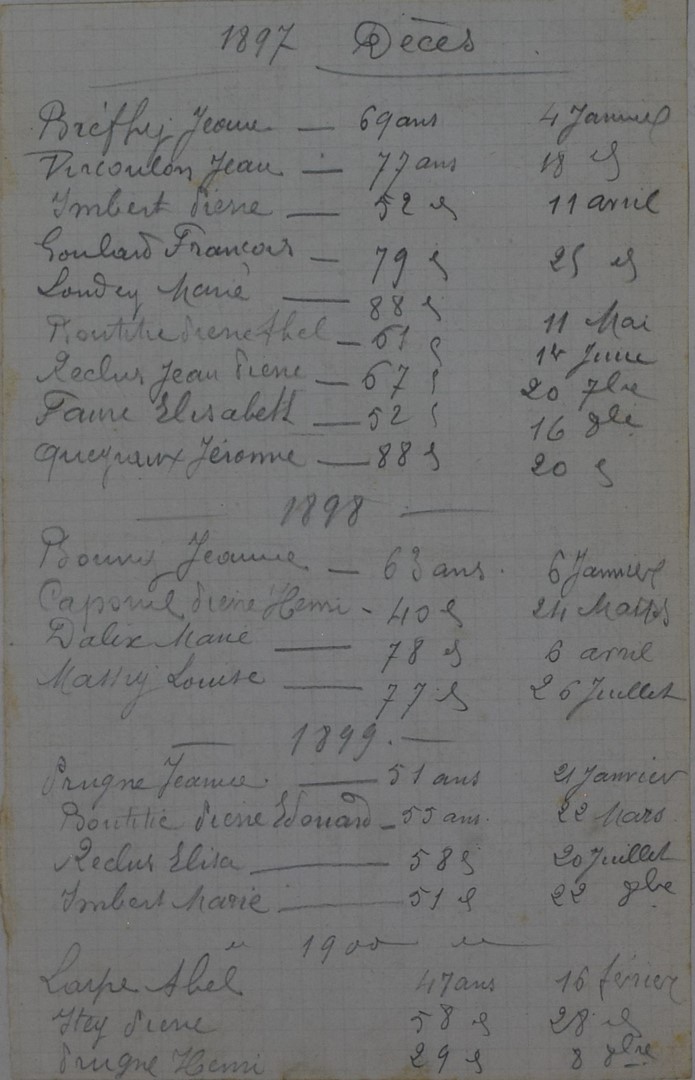 1897 Décès
Jeanne — 69 ans 4 Janvier
Dircoulon Jean — 77 ans 18 d
Imbert Pierre — 52 d 11 avril
Goulard François — 79 d 25 d
Loudey Marie — 88 d 11 Mai
Boutitie Pierre Abel — 61 d 14 Juin
Reclus Jean Pierre — 67 d 20 7bre
Faure Elisabeth — 52 d 16 8bre
Queyraux Jéronne — 88 d 20 d
— 1898 —
Jeanne — 63 ans. 6 Janvier
Pierre Henri - 40 d 24 Mars
Dalix Marie — 78 d 6 avril
Massy Louise — 77 d 26 Juillet
— 1899. —
Prugne Jeanne. — 51 ans 21 Janvier
Boutitie Pierre Edouard — 55 ans. 22 Mars
Reclus Elisa — 58 d 20 Juillet
Imbert Marie — 51 d 22 9bre
1900
Larpe Abel 47 ans 16 février
Itey Pierre 58 d 28 d
Prugne Henri 29 d 8 9bre